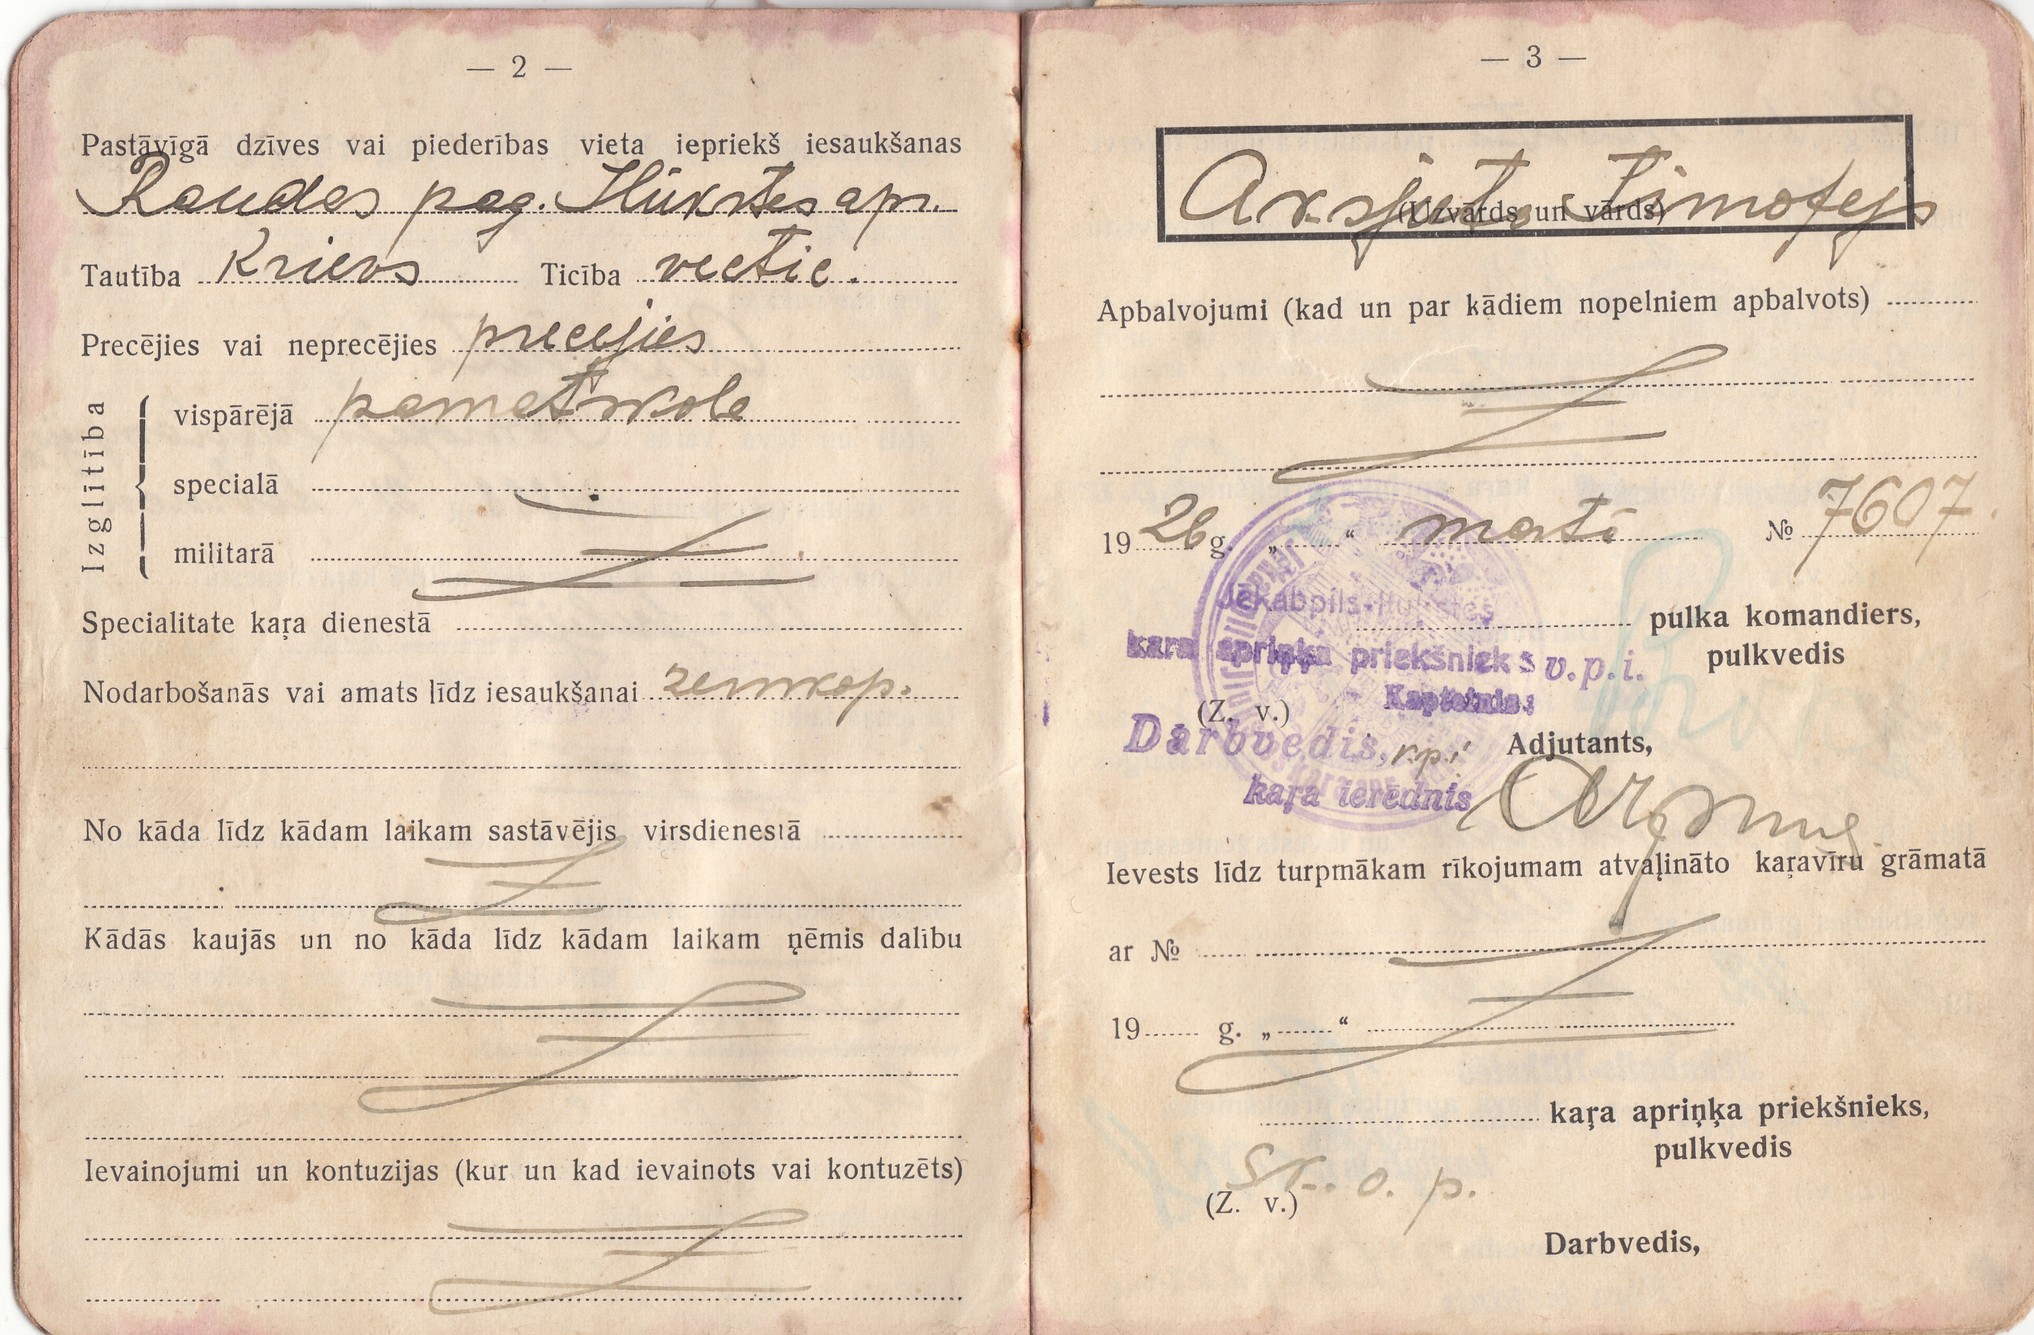 — 2 —
Pastāvīgā dzīves vai piederības vieta iepriekš iesaukšanas
Raudas pag. Ilūkstes apr.
Tautība Krievs Ticība vectic.
Precējies vai neprecējies precejies
Izglītība
vispārējā pamatskola
specialā
militarā
Specialitate kaŗa dienestā
Nodarbošanās vai amats līdz iesaukšanai zemkop.
No kāda līdz kādam laikam sastāvējis virsdienestā
Kādās kaujās un no kāda līdz kādam laikam ņēmis dalību
Ievainojumi un kontuzijas (kur un kad ievainots vai kontuzēts)
— 3 —
Timofejs
(Uzvārds un vārds)
Apbalvojumi (kad un par kādiem nopelniem apbalvots)
1926 g. „ “ martā № 7607
Jēkabpils-Ilūkstes
pulka komandiers,
kara apriņķa priekšnieks v.p.i.
pulkvedis
Kapteinis:
(Z. v.)
Darbvedis, v.p.i Adjutants,
kaŗa ierēdnis
Ievests līdz turpmākam rīkojumam atvaļināto kaŗavīru grāmatā
ar №
19 g. „ “
kaŗa apriņķa priekšnieks,
pulkvedis
Sk. o. p.
(Z. v.)
Darbvedis,